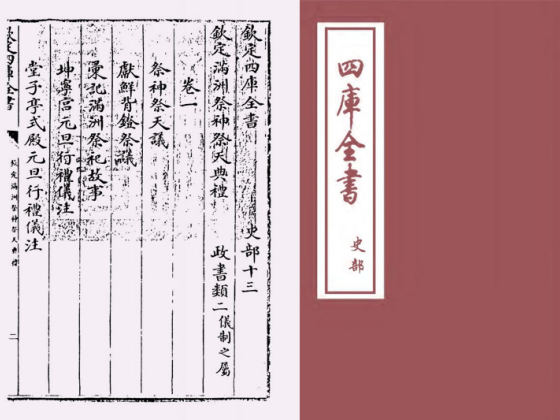 欽定四庫全書 史部十三
欽定滿洲祭神祭天典禮 政書類二儀制之屬
卷一
祭神祭天議
獻鮮背鐙祭議
彙記滿洲祭祀故事
坤寧宮元旦行禮儀注
堂子亭式殿元旦行禮儀注
欽定四庫全書
欽定滿洲祭神祭天典禮
二
四庫全書
史部